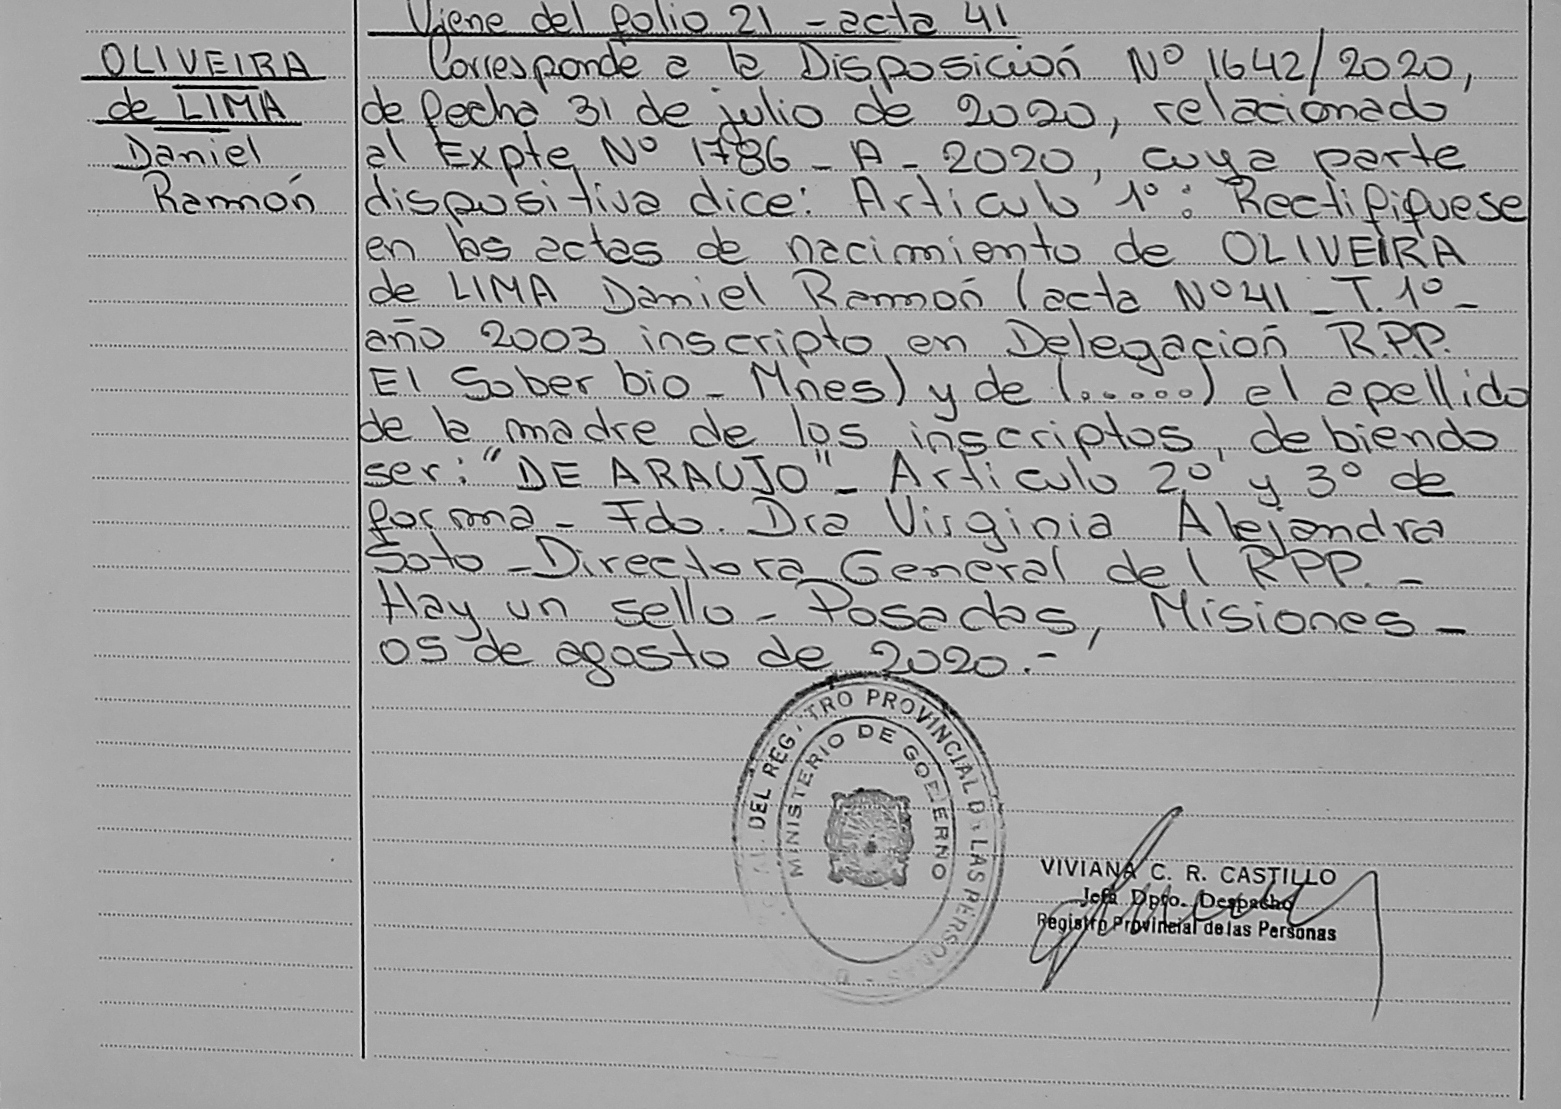 Viene del folio 21 - acta 41
OLIVEIRA
de LIMA
Daniel
Ramón
Corresponde a la Disposición Nº 1642/2020,
de fecha 31 de julio de 2020, relacionado
al Expte Nº 1786 - A - 2020, cuya parte
dispositiva dice: Articulo 1º: Rectifiquese
en las actas de nacimiento de OLIVEIRA
de LIMA Daniel Ramón (acta Nº 41 - T. 1º -
año 2003 inscripto en Delegación R.P.P.
El Soberbio - Mnes) y de (......) el apellido
de la madre de los inscriptos, debiendo
ser: "DE ARAUJO" - Articulo 2º y 3º de
forma - Fdo. Dra Virginia Alejandra
Soto - Directora General del RPP. -
Hay un sello - Posadas, Misiones -
05 de agosto de 2020.-
DEL REGISTRO PROVINCIAL DE LAS PERSONAS
MINISTERIO DE GOBIERNO
VIVIANA C. R. CASTILLO
Jefa Dpto. Despacho
Registro Provincial de las Personas